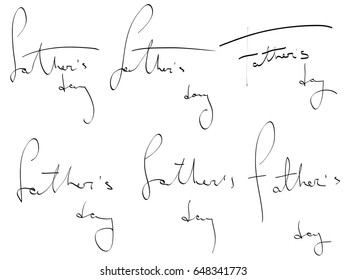 father's father's Father's
day day day
father's father's father's
day day day
shutterstock.com · 648341773